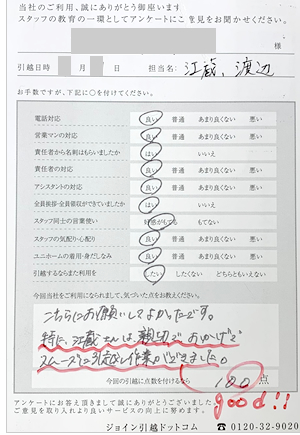 当社のご利用、誠にありがとう御座います
スタッフの教育の一環としてアンケートにご意見をお聞かせください。
様
引越日時 月 日 担当名: 江蔵、渡辺
お手数ですが、下記に○を付けてください。
電話対応 良い 普通 あまり良くない 悪い
営業マンの対応 良い 普通 あまり良くない 悪い
責任者から名刺はもらいましたか はい いいえ
責任者の対応 良い 普通 あまり良くない 悪い
アシスタントの対応 良い 普通 あまり良くない 悪い
全員挨拶・全員領収ができていましたか はい いいえ
スタッフ同士の言葉使い 好感がもてる もてない
スタッフの気配り・心配り 良い 普通 あまり良くない 悪い
ユニホームの着用・身だしなみ 良い 普通 あまり良くない 悪い
引越するならまた利用を したい したくない どちらともいえない
今回当社をご利用になられまして、気づいた点をお教えください。
こちらにお願いしてよかったです。
特に、江蔵さんは、親切で おかげで
スムーズに引越し作業ができました。
今回の引越に点数を付けるなら 100 点
good!!
アンケートにお答え頂きまして誠にありがとうございました。
ご意見を取り入れより良いサービスの向上に努めます。
ジョイン引越ドットコム ☎0120-32-9020